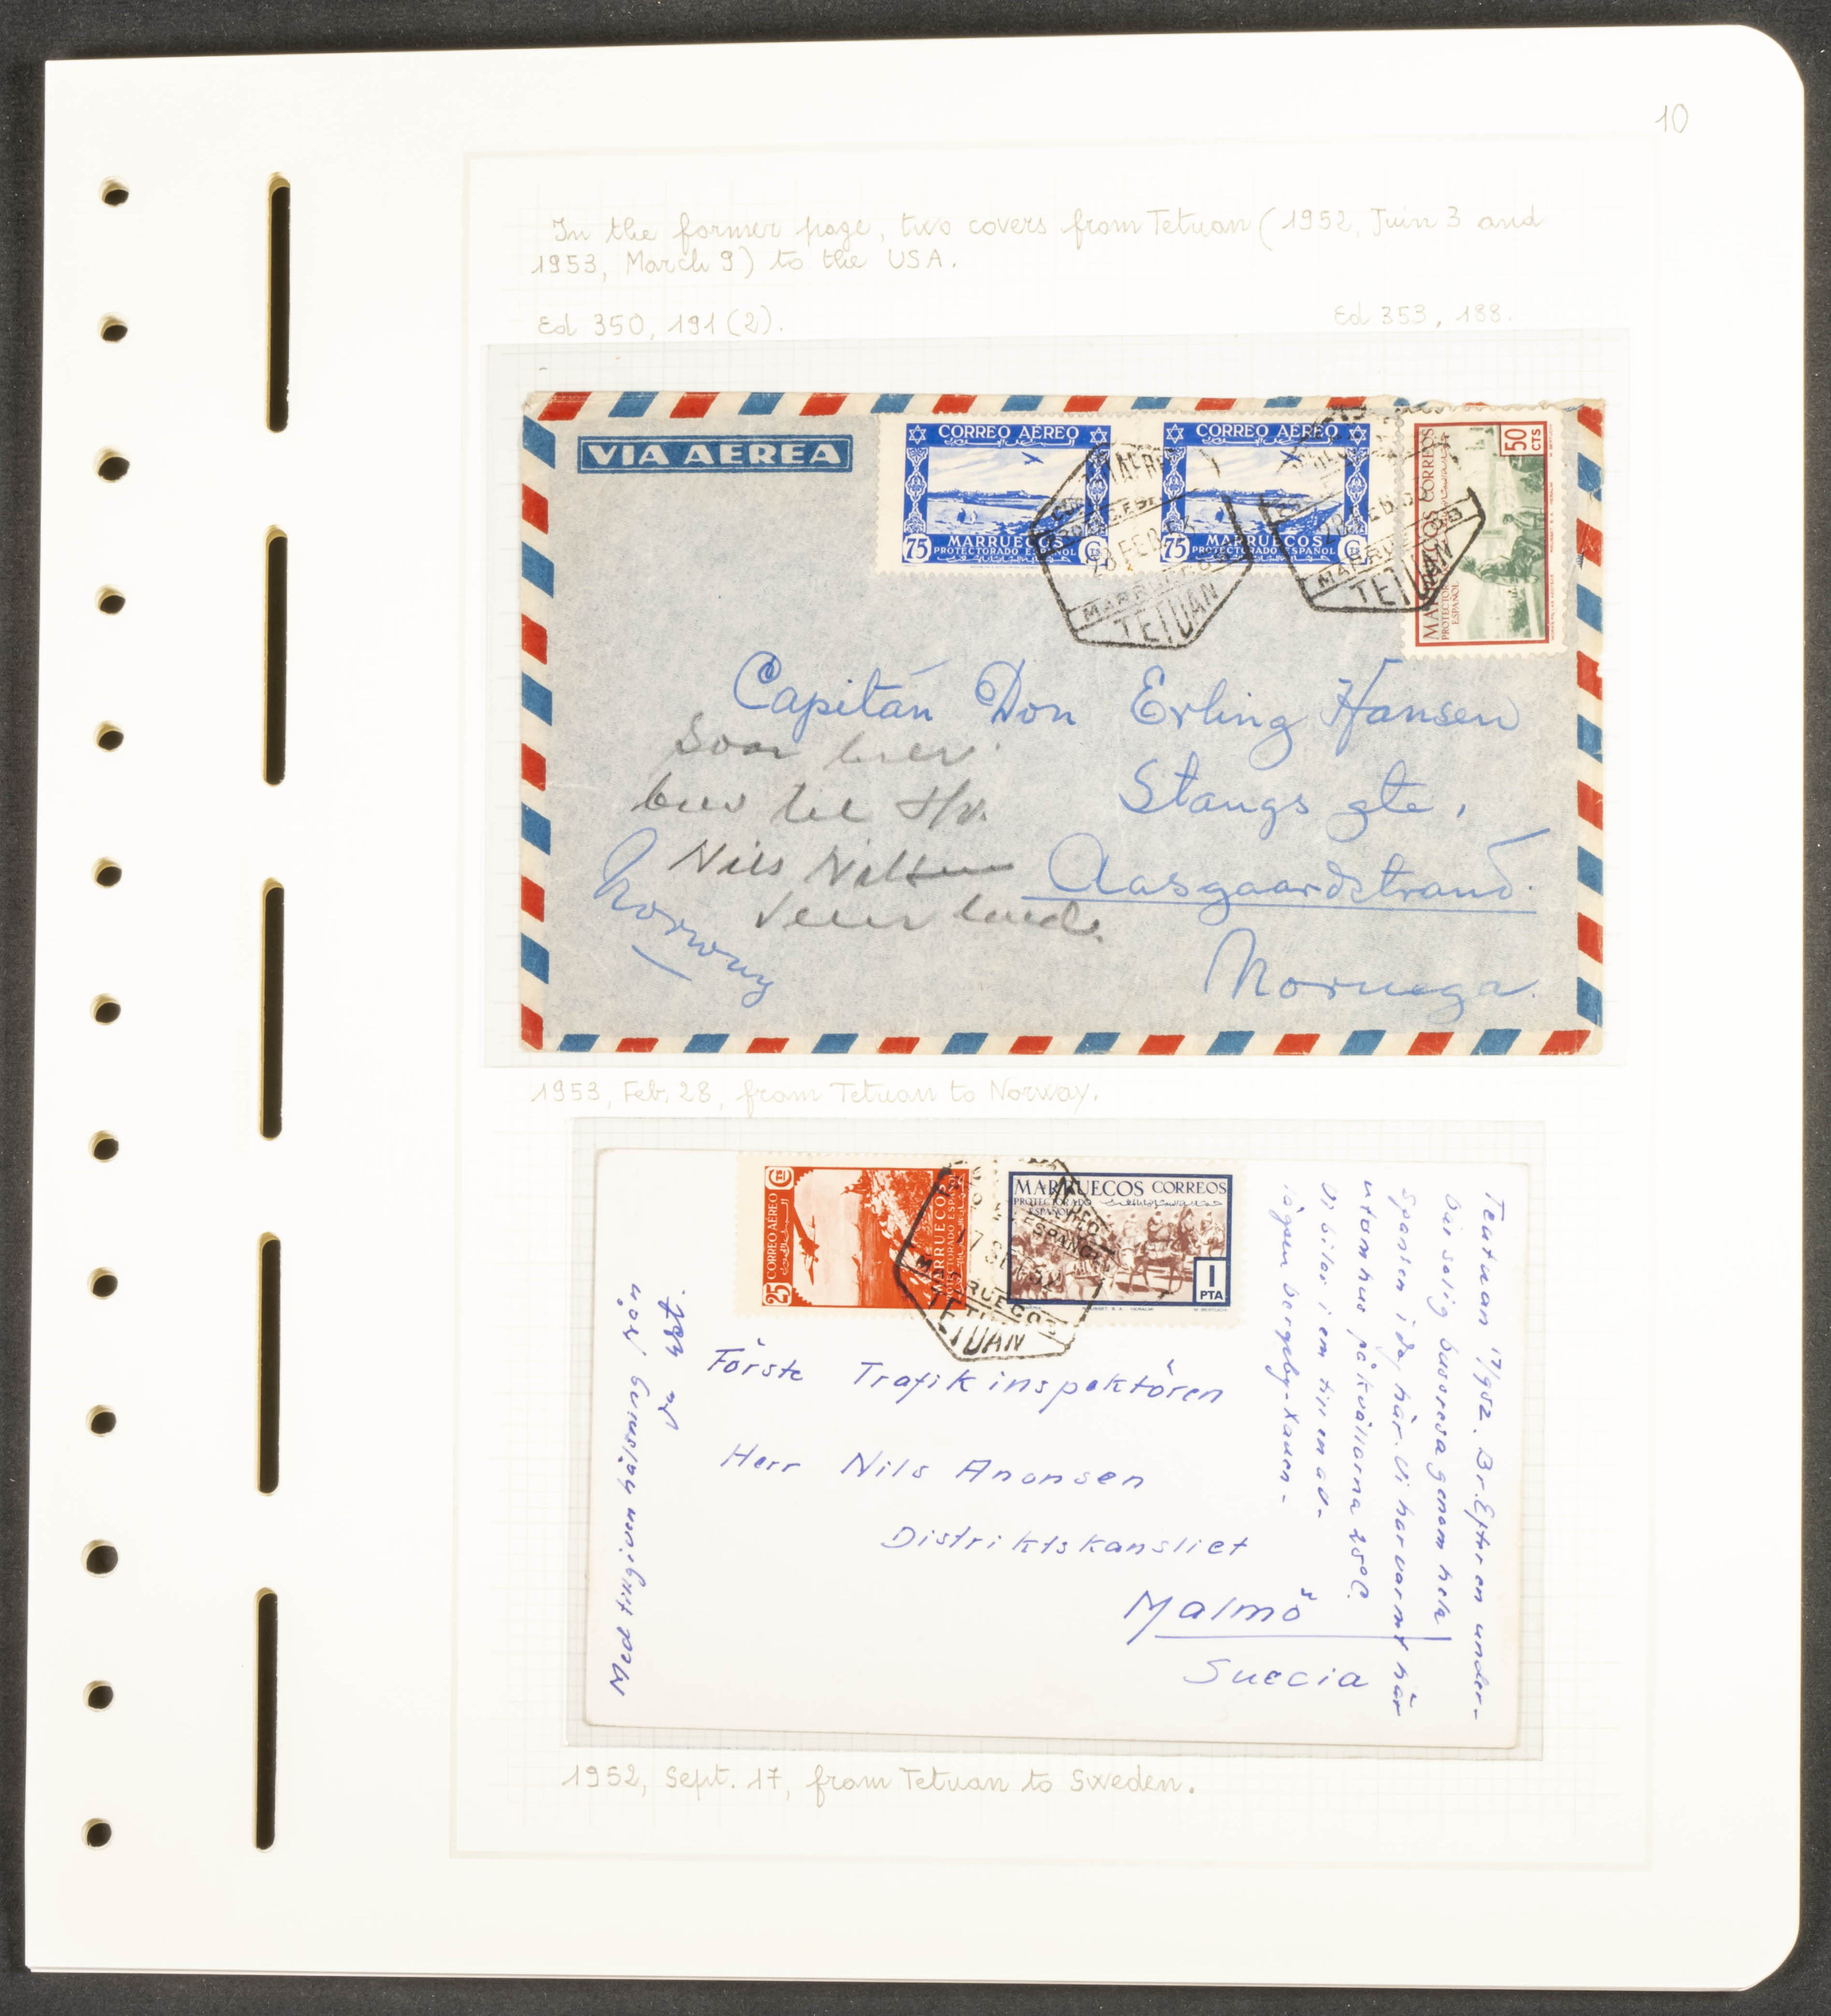 10
In the former page, two covers from Tetuan (1952, Juin 3 and
1953, March 9) to the USA.
Ed 350, 191 (2).
Ed 353, 188.
VIA AEREA
CORREO AÉREO
75 MARRUECOS CTS
PROTECTORADO ESPAÑOL
CORREO AÉREO
75 MARRUECOS CTS
PROTECTORADO ESPAÑOL
MARRUECOS CORREOS
PROTECTORADO
ESPAÑOL
50 CTS
28 FEB 53
MARRUECOS
TETUAN
28 FEB 53
MARRUECOS
TETUAN
Capitán Don Erling Hansen
Stangs gte,
Aasgaardstrand.
Noruega.
Norway
brev til
Nils
1953, Feb. 28, from Tetuan to Norway.
25 CORREO AÉREO
MARRUECOS
PROTECTORADO ESPAÑOL
MARRUECOS CORREOS
PROTECTORADO
ESPAÑOL
1
PTA
17 SEP 52
MARRUECOS
TETUAN
Förste Trafikinspektören
Herr Nils Anonsen
Distriktskansliet
Malmö
Suecia
Teutuan 17/9 52. Br. Efter en under-
bar solig bussresa genom hela
Spanien i dag här. Vi har varmt här
utomhus på kvällarna 25°C.
Vi bilar i em till en av-
lägsen bergsby-Xauen-
Med tillgiven hälsning från
1952, Sept. 17, from Tetuan to Sweden.